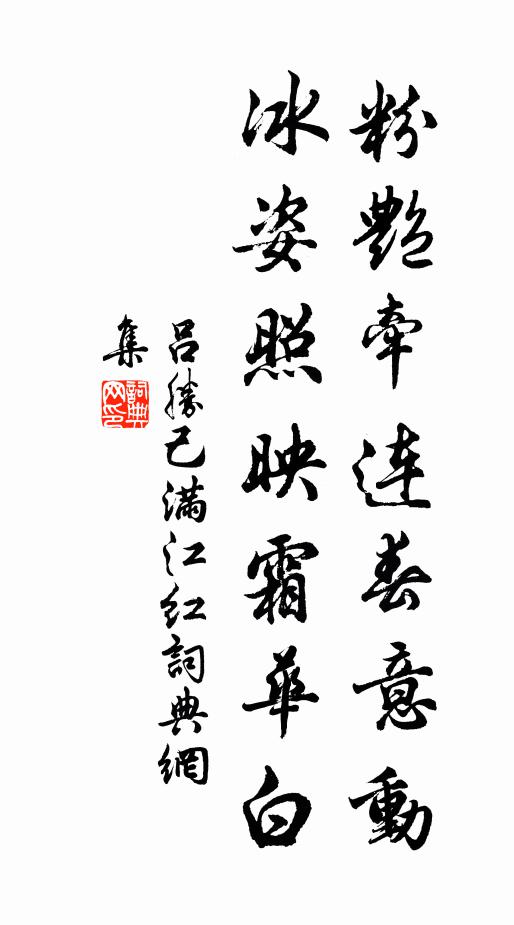 粉艷牽連春意動
冰姿照映霜華白
呂勝己滿江紅詞典網
集
詞典網印